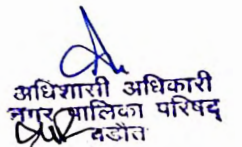 अधिशासी अधिकारी
नगर पालिका परिषद्
बडौत